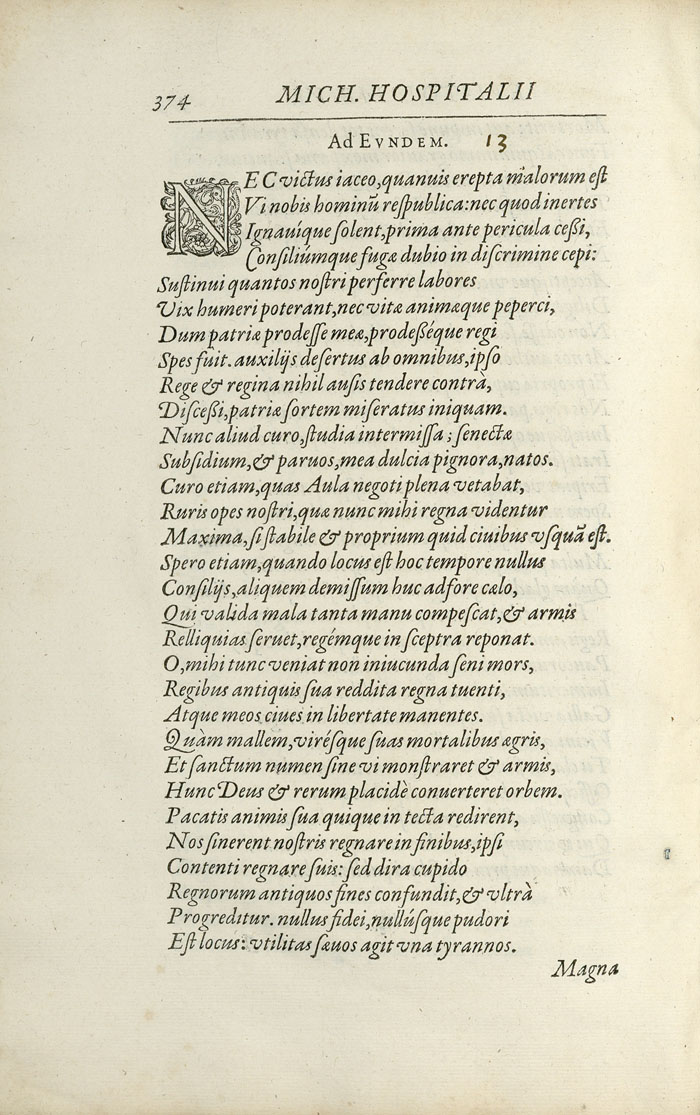 374 MICH. HOSPITALII
Ad EVNDEM. 13
NEC victus iaceo, quanuis erepta malorum est
Vi nobis hominū respublica: nec quod inertes
Ignauíque solent, prima ante pericula cessi,
Consiliúmque fugæ dubio in discrimine cepi:
Sustinui quantos nostri perferre labores
Vix humeri poterant, nec vitæ animæque peperci,
Dum patriæ prodesse meæ, prodesséque regi
Spes fuit. auxilijs desertus ab omnibus, ipso
Rege & regina nihil ausis tendere contrà,
Discessi, patriæ sortem miseratus iniquam.
Nunc aliud curo, studia intermissa; senectæ
Subsidium, & paruos, mea dulcia pignora, natos.
Curo etiam, quas Aula negoti plena vetabat,
Ruris opes nostri, quæ nunc mihi regna videntur
Maxima, si stabile & proprium quid ciuibus vsquā est.
Spero etiam, quando locus est hoc tempore nullus
Consilijs, aliquem demissum huc adfore cælo,
Qui valida mala tanta manu compescat, & armis
Relliquias seruet, regémque in sceptra reponat.
O, mihi tunc veniat non iniucunda seni mors,
Regibus antiquis sua reddita regna tuenti,
Atque meos ciues in libertate manentes.
Quàm mallem, virésque suas mortalibus ægris,
Et sanctum numen sine vi monstraret & armis,
Hunc Deus & rerum placidè conuerteret orbem.
Pacatis animis sua quique in tecta redirent,
Nos sinerent nostris regnare in finibus, ipsi
Contenti regnare suis: sed dira cupido
Regnorum antiquos fines confundit, & vltrà
Progreditur. nullus fidei, nullúsque pudori
Est locus: vtilitas sæuos agit vna tyrannos.
Magna